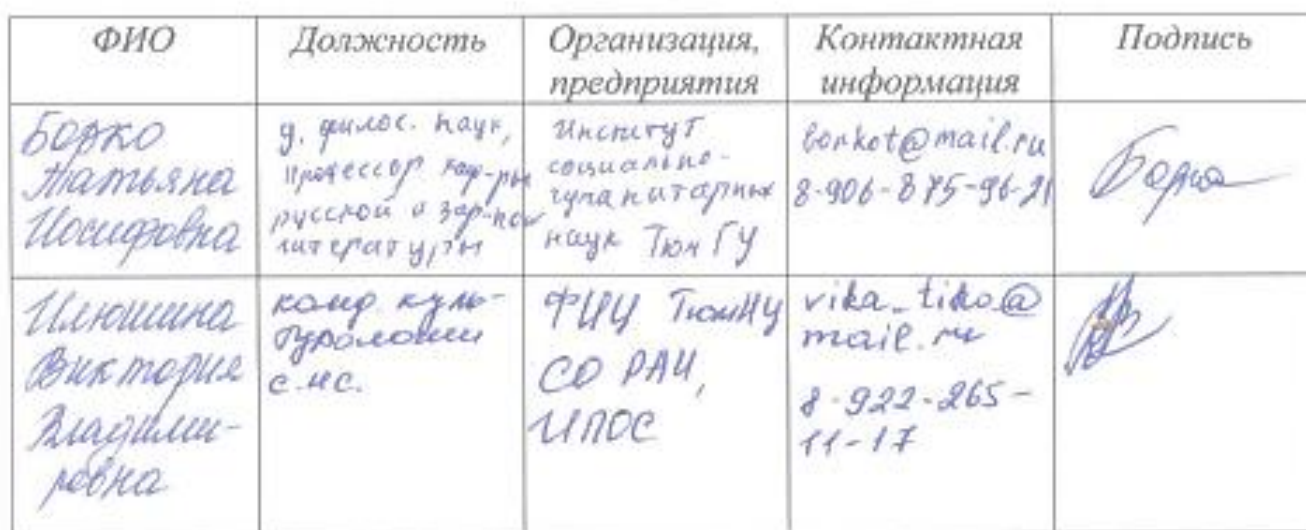 ФИО
Должность
Организация, предприятия
Контактная информация
Подпись
Борко
Татьяна
Иосифовна
д. филос. наук,
профессор каф-ры
русской и зар-ной
литературы
Институт
социально-
гуманитарных
наук ТюмГУ
borkot@mail.ru
8-906-875-96-21
Борко
Илюшина
Виктория
Владими-
ровна
канд. куль-
турологии
с.н.с.
ФИЦ ТюмНЦ
СО РАН,
ИПОС
vika_tiko@
mail.ru
8-922-265-
11-17